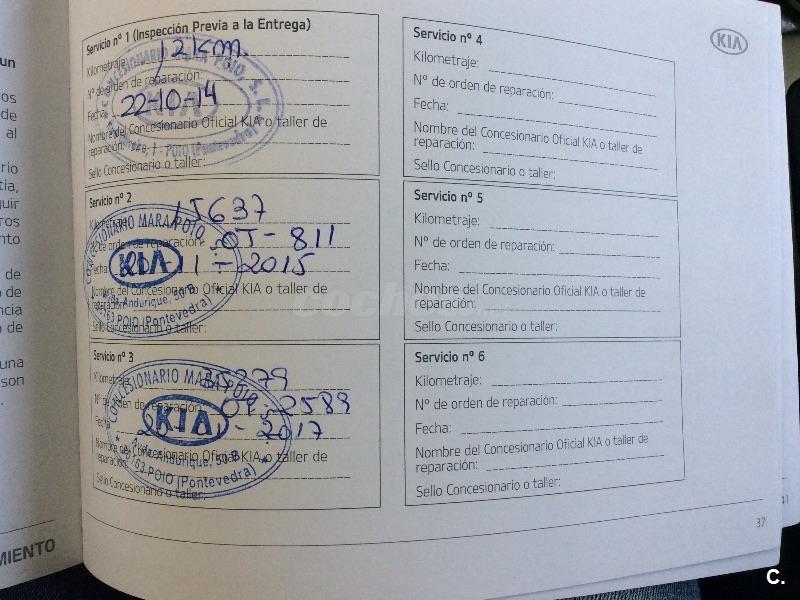 un
os
de
al
rio
tía,
uir
ros
nto
de
o de
ncia
o de
una
son
MIENTO
Servicio nº 1 (Inspección Previa a la Entrega)
Kilometraje: 12 Km.
Nº de orden de reparación:
Fecha: 22-10-14
Nombre del Concesionario Oficial KIA o taller de
reparación:
Sello Concesionario o taller:
CONCESIONARIO MARA POIO, S.L.
KIA
POIO (Pontevedra)
Servicio nº 2
Kilometraje: 15637
Nº de orden de reparación: OT-811
Fecha: 2015
Nombre del Concesionario Oficial KIA o taller de
reparación:
Sello Concesionario o taller:
CONCESIONARIO MARA POIO, S.L.
KIA
Avda. Andurique, 50 B
36163 POIO (Pontevedra)
Servicio nº 3
Kilometraje: 35279
Nº de orden de reparación: OT-2589
Fecha: 2017
Nombre del Concesionario Oficial KIA o taller de
reparación:
Sello Concesionario o taller:
CONCESIONARIO MARA POIO, S.L.
KIA
Avda. Andurique, 50 B
36163 POIO (Pontevedra)
Servicio nº 4
Kilometraje:
Nº de orden de reparación:
Fecha:
Nombre del Concesionario Oficial KIA o taller de
reparación:
Sello Concesionario o taller:
Servicio nº 5
Kilometraje:
Nº de orden de reparación:
Fecha:
Nombre del Concesionario Oficial KIA o taller de
reparación:
Sello Concesionario o taller:
Servicio nº 6
Kilometraje:
Nº de orden de reparación:
Fecha:
Nombre del Concesionario Oficial KIA o taller de
reparación:
Sello Concesionario o taller:
KIA
37
41
C.